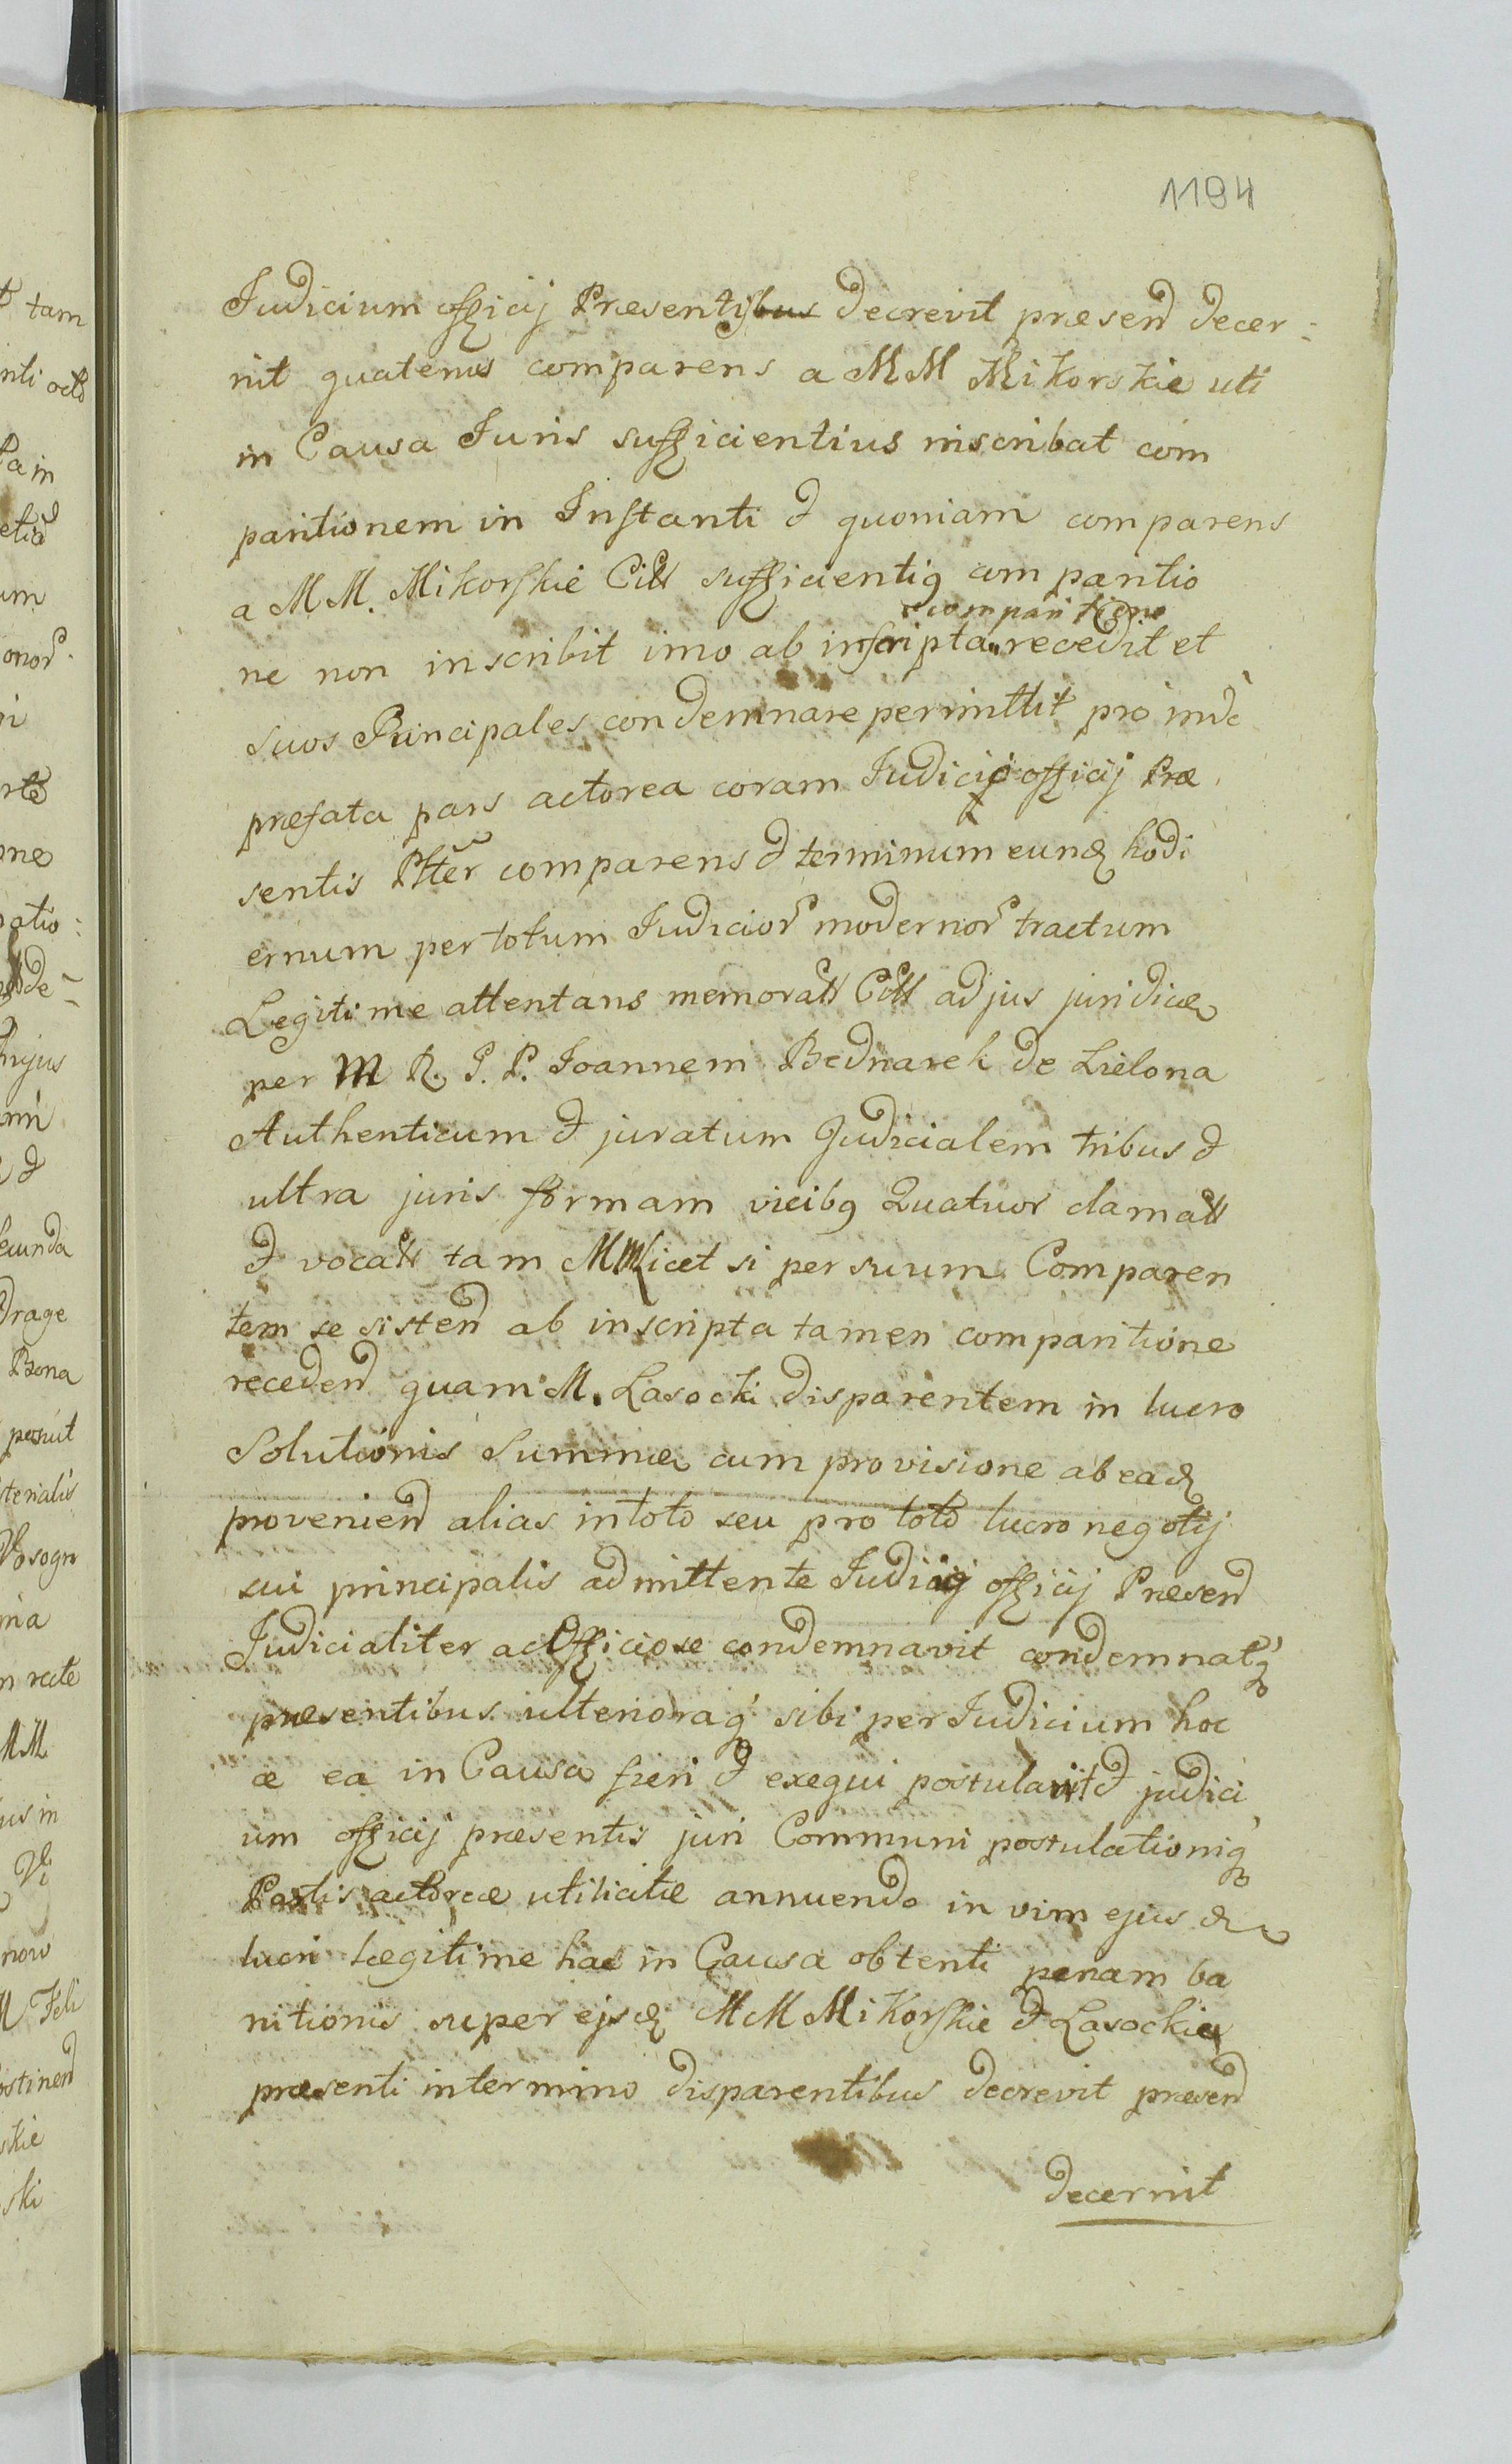 1194
Judicium officij Præsentis decrevit præsend decer:
nit quatenus comparens a MM Mikorskie uti
in Causa Juris sufficientius inscribat com
paritionem in Instanti & quoniam comparens
a MM. Mikorskie Citt sufficientiq com paritio
comparitione
ne non inscribit imo ab inscripta recedit et
suos Principales condemnare permittit pro inde
præfata pars actorea coram Judicij officij Præ
sentis Pltter comparens & terminum eund hodi
ernum per totum Judicior modernor tractum
Legitime attentans memoratt Citt ad jus juridice
per M R. P. P. Joannem Bednarek de Lielona
Authenticum & juratum Judicialem tribus &
ultra juris formam vicibq Quatuor clamatt
& vocatt tam MM licet si per suum Comparen
tem se sistend ab inscripta tamen comparitione
recedend quam M. Lasocki disparentem in lucro
Solutionis Summæ cum provisione ab ead
proveniend alias in toto seu pro toto lucro negotij
sui principalis admittente Judicij officij Præsend
Judicialiter ac Officiose condemnavit condemnatq
præsentibus ulterioraq sibi per Judicium hoc
æ ea in Causa fieri & exequi postulavit & judici
um officij præsentis juri Communi postulationiq
Partis actoreæ utilicitæ annuendo in vim ejusd
lucri Legitime hac in Causa obtenti penam ba
nitionis super ejsd MM Mikorskie & Lasockie
præsenti in termino disparentibus decrevit præsend
decernit
t tam
nti octo
um
onor
ri
rte
one
patio:
hujus
& 
Drage
Bona
posuit
Vosogn
ina
MM
us in
Vi
now
M Feli
ostinend
skie
ski